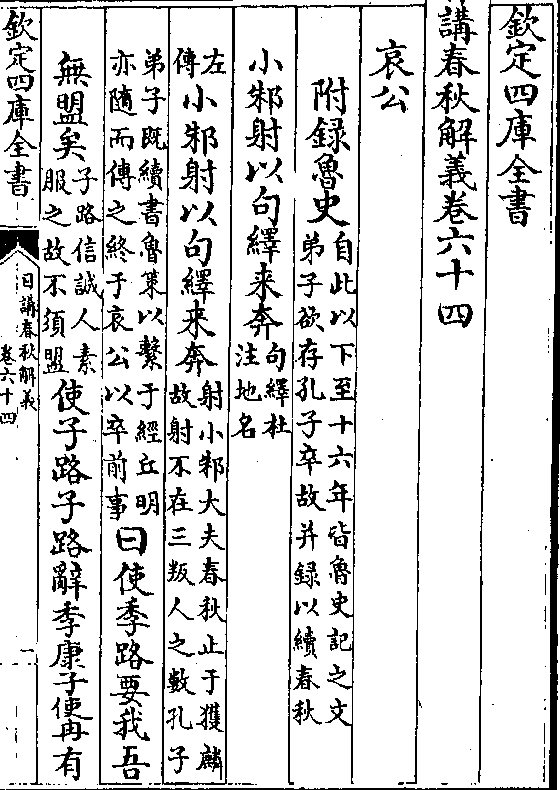 欽定四庫全書
講春秋解義卷六十四
哀公
附録魯史自此以下至十六年皆魯史記之文
弟子欲存孔子卒故并録以續春秋
小邾射以句繹来奔句繹杜
注地名
左
傳
小邾射以句繹来奔射小邾大夫春秋止于獲麟
故射不在三叛人之數孔子
弟子既續書魯策以繫于經丘明
亦隨而傳之終于哀公以卒前事
曰使季路要我吾
無盟矣子路信誠人素
服之故不須盟
使子路子路辭季康子使冉有
欽定四庫全書
日講春秋解義
卷六十四
一